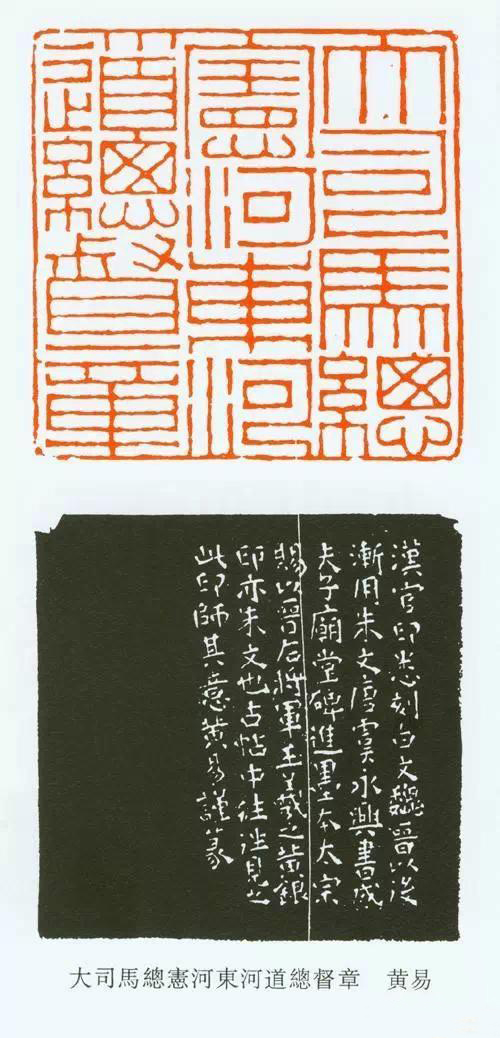 大司馬總
憲河東河
道總督章
漢官印悉刻白文魏晉以後
漸用朱文唐虞永興書成
夫子廟堂碑進墨本太宗
賜以晉右將軍王羲之黃銀
印亦朱文也古帖中往往見之
此印師其意黃易謹篆
大司馬總憲河東河道總督章 黄易